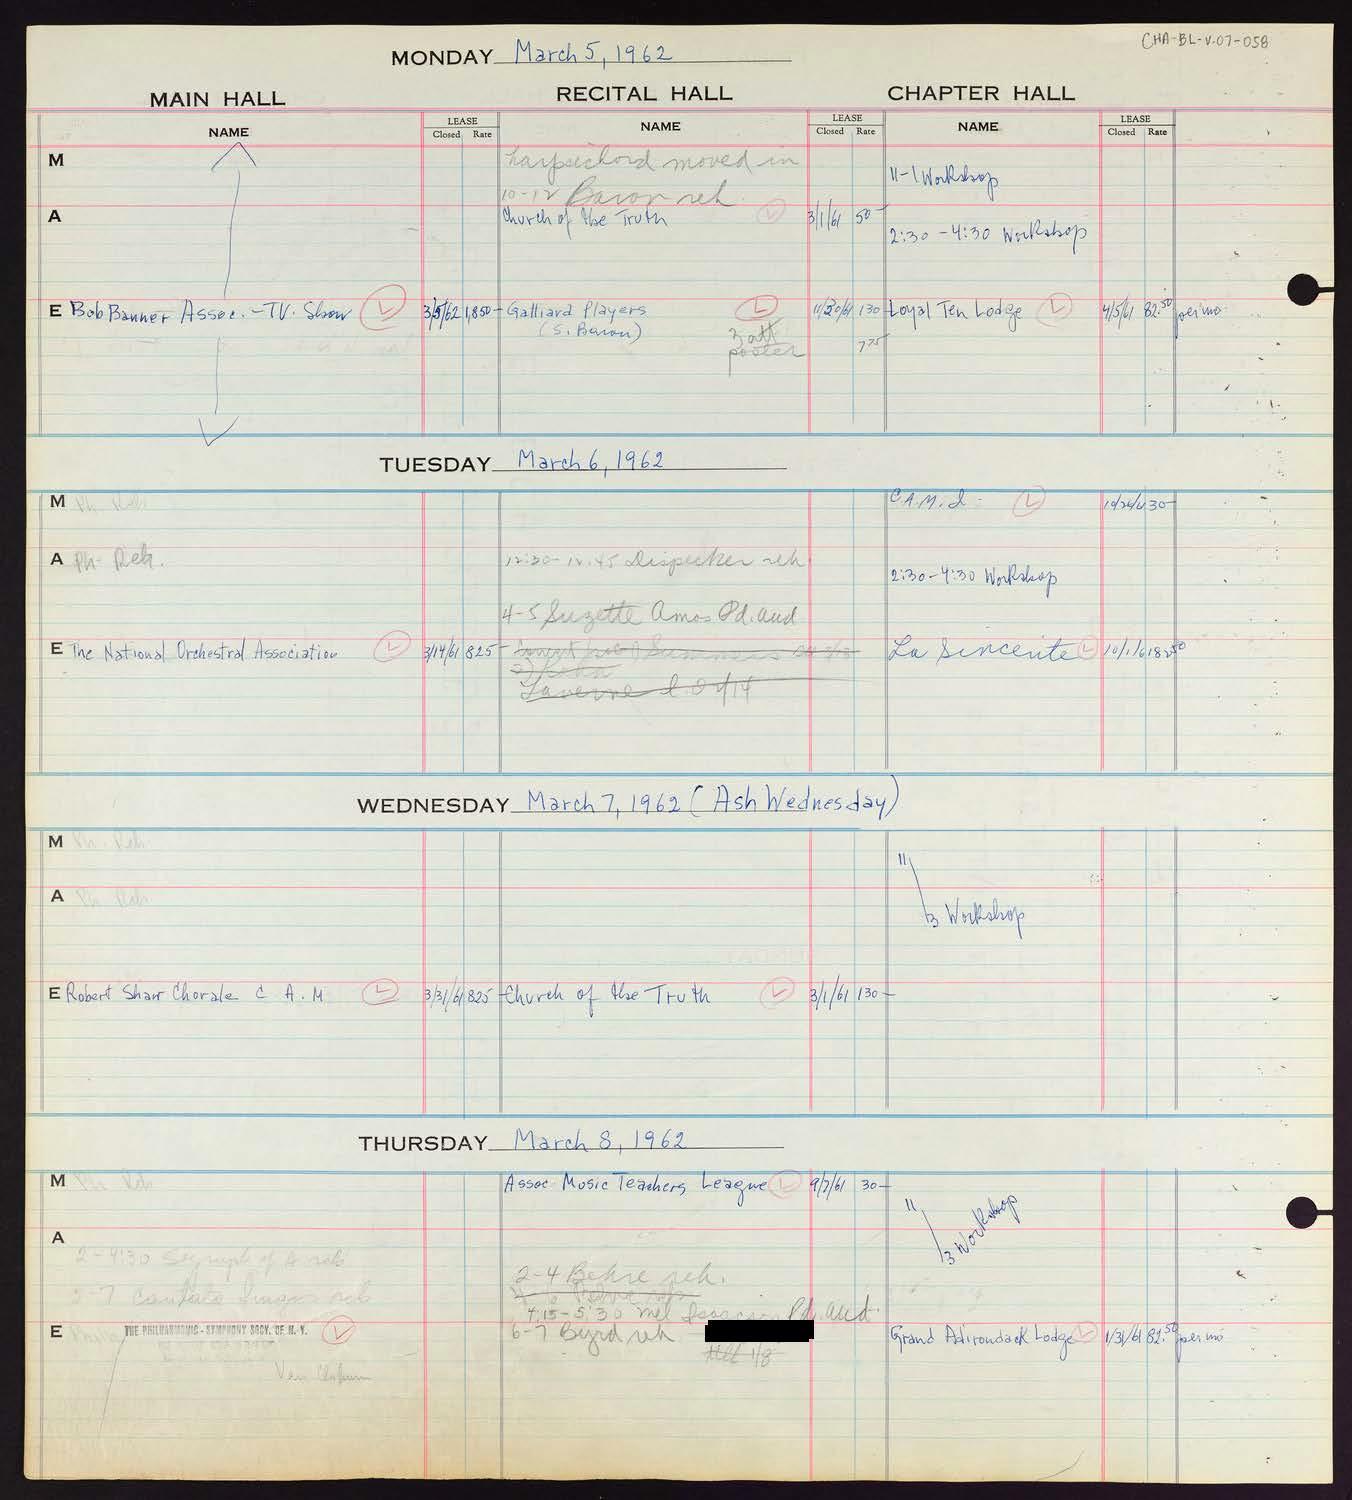 CHA-BL-V.07-058
MONDAY March 5, 1962
MAIN HALL RECITAL HALL CHAPTER HALL
NAME LEASE Closed Rate NAME LEASE Closed Rate NAME LEASE Closed Rate
M harpsichord moved in
11-1 Workshop
10-12 Baron reh.
A Church of the Truth 3/1/61 50-
2:30-4:30 Workshop
E Bob Banner Assoc.-TV. Show L 3/5/62 1,850- Galliard Players L 11/20/61 130- Loyal Ten Lodge L 4/5/61 82.50 per mo.
(S. Baron) 3 att
poster 7 75
TUESDAY March 6, 1962
M Ph. Reh. C.A.M.I. L 30-
A Ph. Reh. 12:30-12:45 Dispecker reh.
2:30-4:30 Workshop
4-5 Suzette Amos Pd. aud
E The National Orchestral Association L 3/14/61 825- La Sincerite L 10/1/61 82.50
WEDNESDAY March 7, 1962 (Ash Wednesday)
M Ph. Reh.
11
A Ph. Reh.
3 Workshop
E Robert Shaw Chorale C A.M L 3/31/61 825- Church of the Truth L 3/1/61 130-
THURSDAY March 8, 1962
M Ph. Reh. Assoc Music Teachers League L 9/7/61 30-
11
3 Workshop
A
2-4:30 reh
2-4 Behre reh.
2-7 Cantata Singers reh
4:15-5:30 Mel Pd. aud.
E THE PHILHARMONIC-SYMPHONY SOCY. OF N. Y. L 6-7 Byrd reh Grand Adirondack Lodge L 1/31/61 82.50 per mo
1/8
Van Cliburn